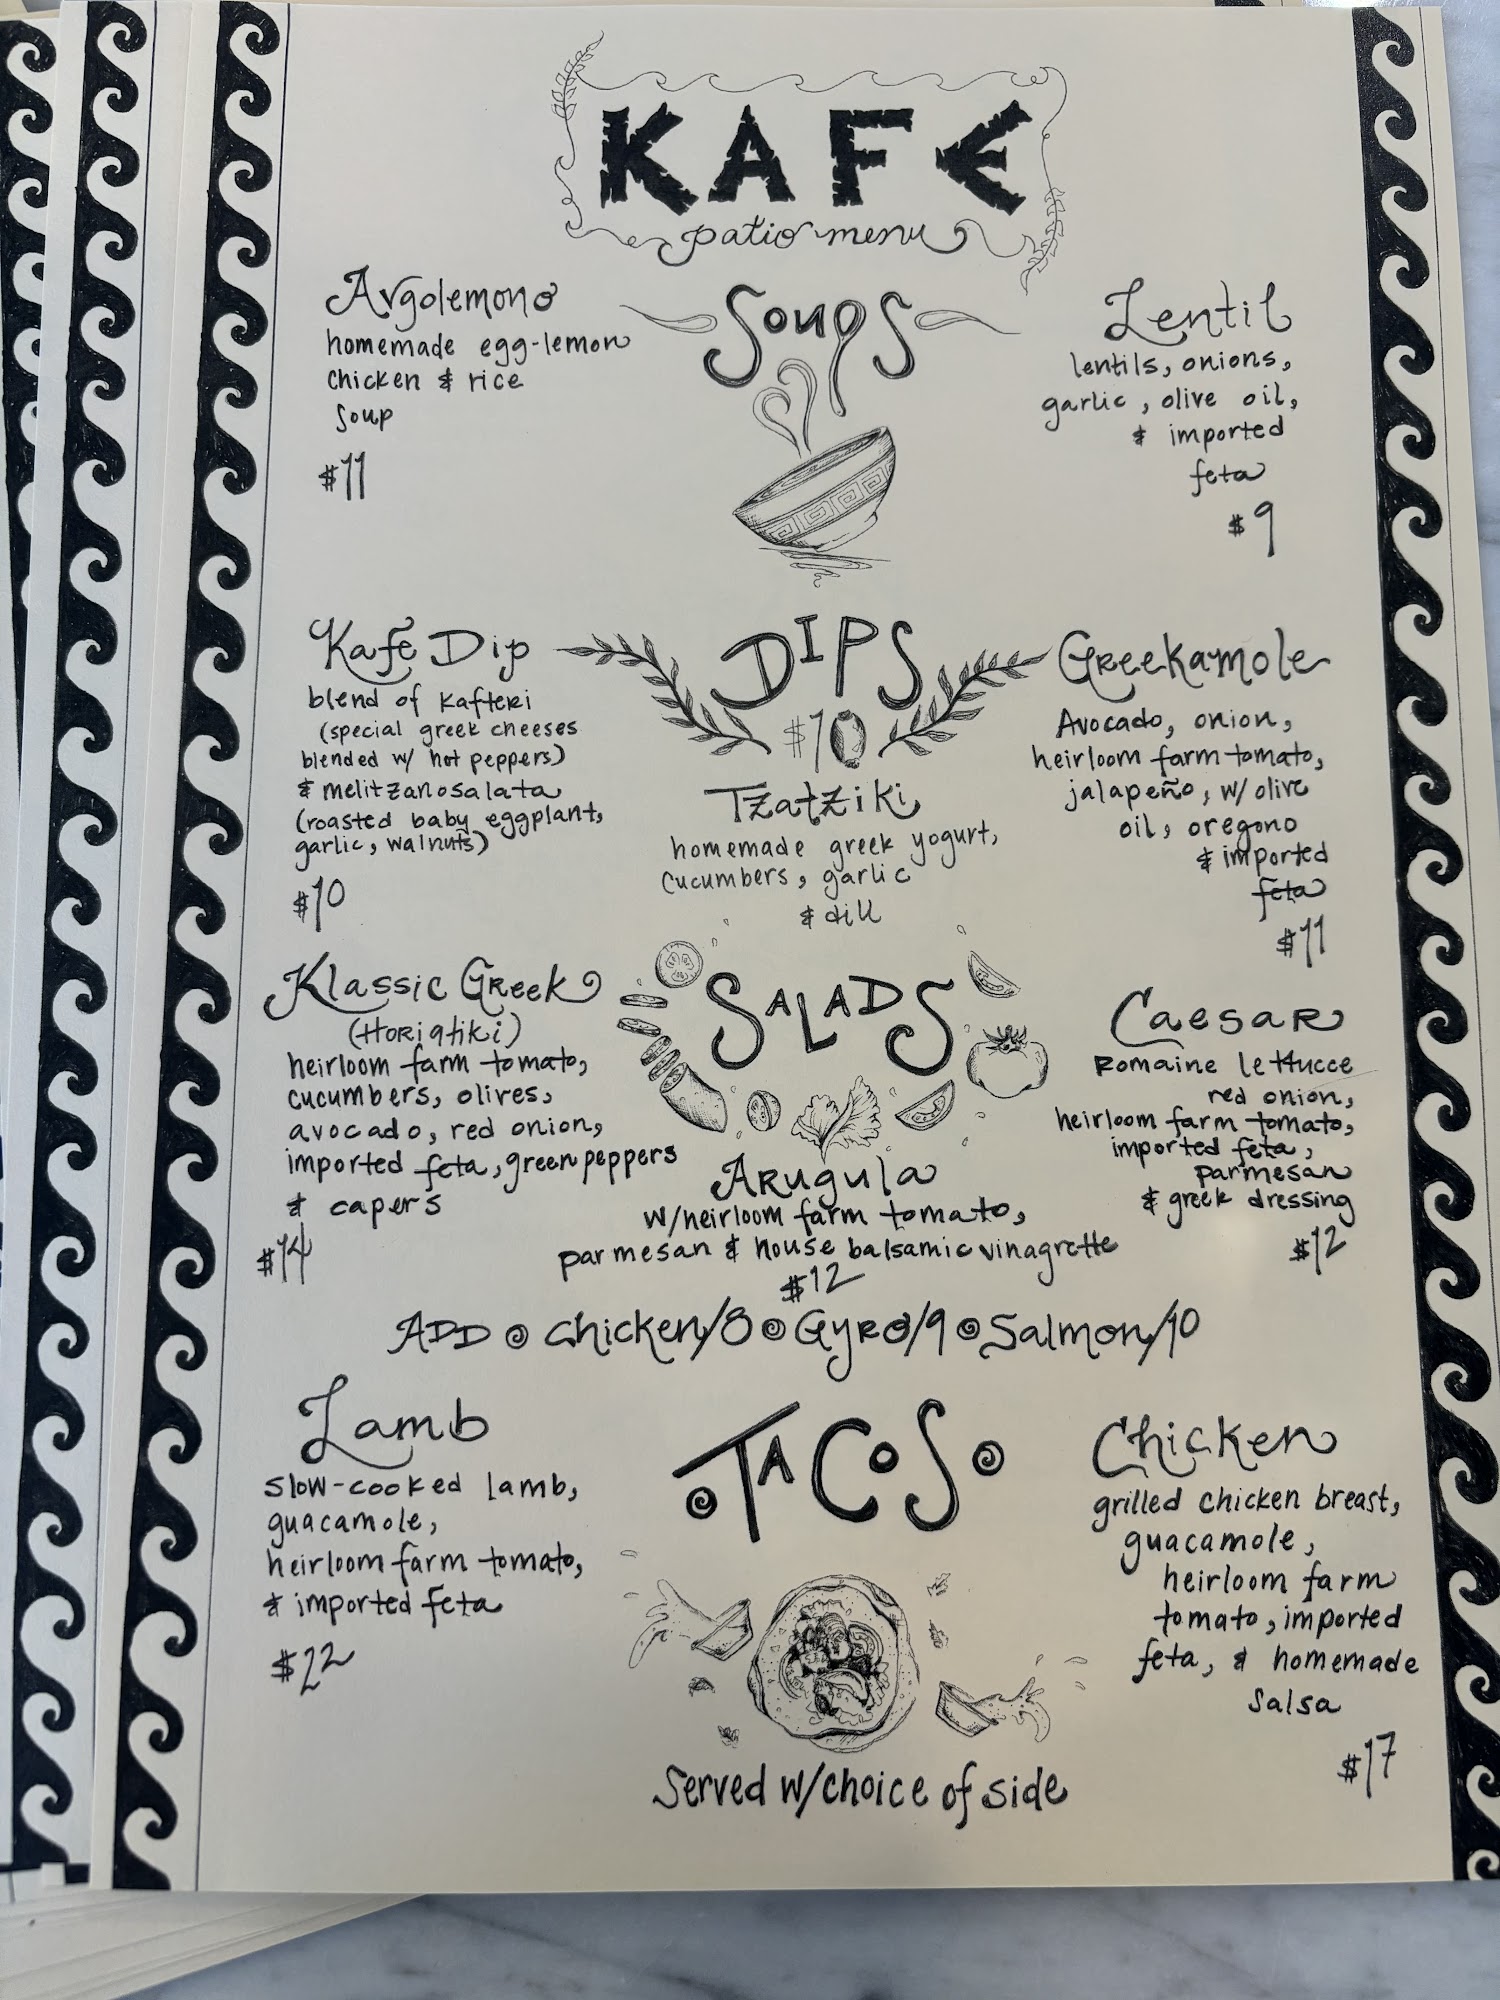 KAFE
patio menu
Soups
Avgolemono
homemade egg-lemon
chicken & rice
soup
$11
Lentil
lentils, onions,
garlic, olive oil,
& imported
feta
$9
DIPS
$10
Kafe Dip
blend of Kafteri
(special greek cheeses
blended w/ hot peppers)
& melitzanosalata
(roasted baby eggplant,
garlic, walnuts)
$10
Tzatziki
homemade greek yogurt,
cucumbers, garlic
& dill
Greekamole
Avocado, onion,
heirloom farm tomato,
jalapeño, w/ olive
oil, oregono
& imported
feta
$11
SALADS
Klassic Greek
(Horiatiki)
heirloom farm tomato,
cucumbers, olives,
avocado, red onion,
imported feta, green peppers
& capers
$14
Arugula
w/heirloom farm tomato,
parmesan & house balsamic vinagrette
$12
Caesar
Romaine lettucce
red onion,
heirloom farm tomato,
imported feta,
parmesan
& greek dressing
$12
ADD chicken/8 Gyro/9 Salmon/10
TACOS
Lamb
slow-cooked lamb,
guacamole,
heirloom farm tomato,
& imported feta
$22
Chicken
grilled chicken breast,
guacamole,
heirloom farm
tomato, imported
feta, & homemade
salsa
$17
Served w/choice of side